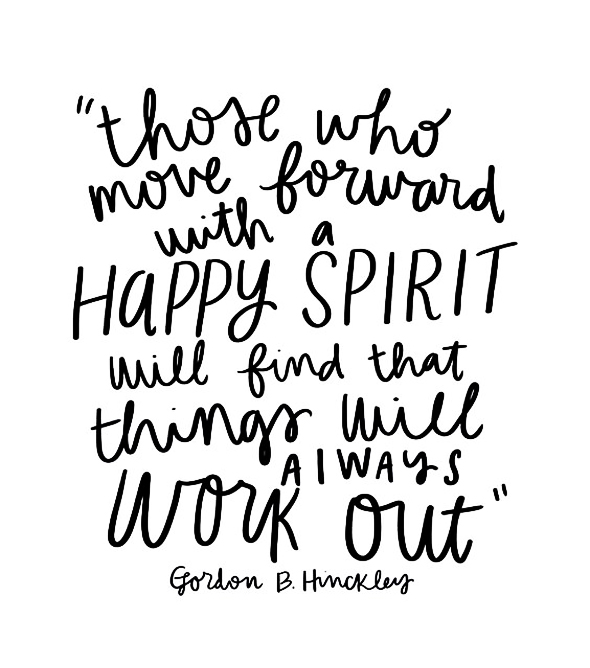 "those who
move forward
with a
HAPPY SPIRIT
will find that
things will
ALWAYS
WORK out"
Gordon B. Hinckley